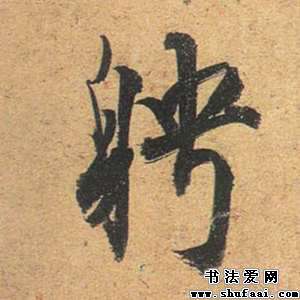 聘
书法爱网
www.shufaai.com